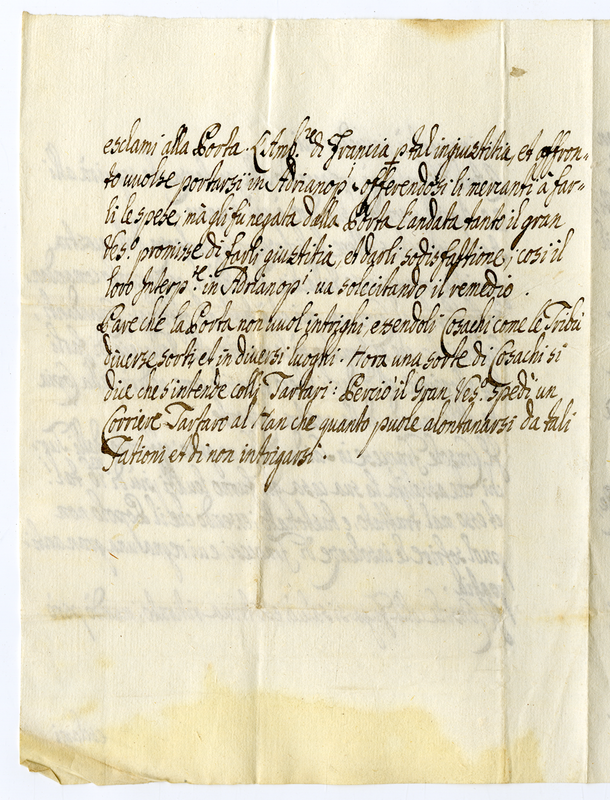 esclami alla Porta. L'Amb.re di Francia p tal ingiustitia, et affron-
to uuolse portarsi in Adrianop.i offerendosi li mercanti à far-
li le spese, mà gli fu negata dalla Porta l'andata tante il gran
Ves.o promise di farli giustitia, et darli sodisfattione, così il
loro Interp.te in Adrianop.i ua solecitando il remedio.
Pare che la Porta non uuol intrighi essendoli Cosachi come le Tribù
diuerse sorti, et in diuersi luoghi. Hora una sorte di Cosachi si
dice che s'intende colli Tartari: Perciò il Gran Ves.o spedì un
Corriere Tartaro al Han che quanto puole alontanarsi da tali
Fationi et di non intrigarsi.